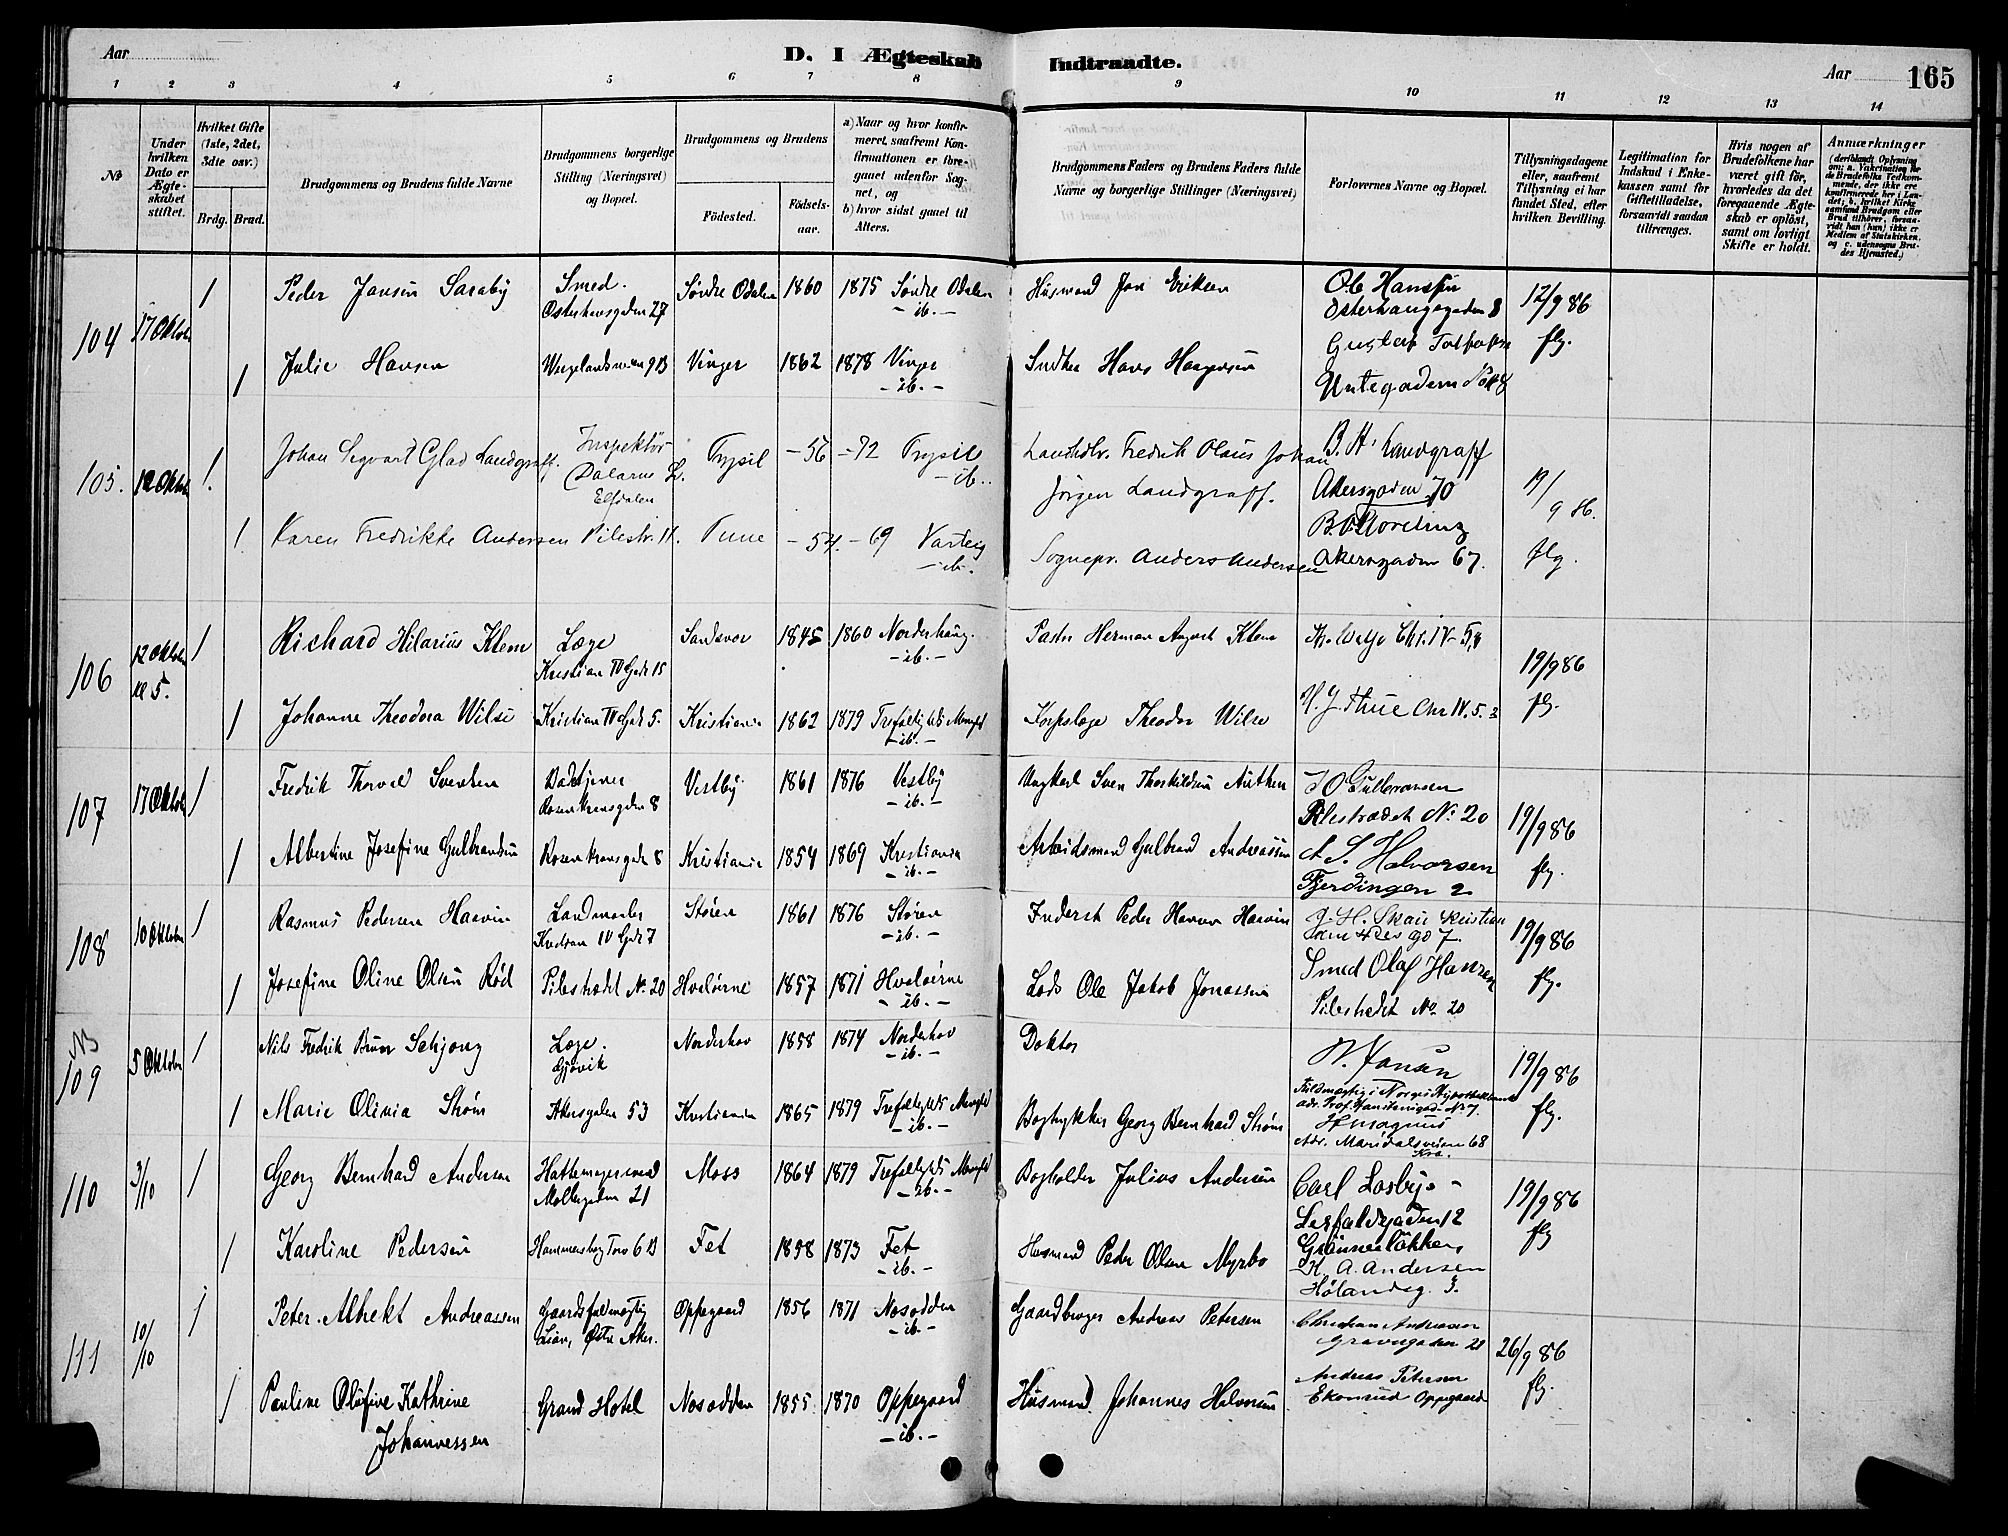 Aar
D. I Ægteskab Indtraadte.
Aar 165
1 2 3 4 5 6 7 8 9 10 11 12 13 14
No
Under hvilken Dato er Ægteskabet stiftet.
Hvilket Gifte (1ste, 2det, 3die osv.)
Brdg. Brud.
Brudgommens og Brudens fulde Navne
Brudgommens borgerlige Stilling (Næringsvei) og Bopæl.
Brudgommens og Brudens
Födested.
Födselsaar.
a) Naar og hvor konfirmeret, saafremt Konfirmationen er foregaaet udenfor Sognet, og
b) hvor sidst gaaet til Alters.
Brudgommens Faders og Brudens Faders fulde Navne og borgerlige Stillinger (Næringsvei)
Forlovernes Navne og Bopæl.
Tillysningsdagene eller, saafremt Tillysning ei har fundet Sted, efter hvilken Bevilling.
Legitimation for Indskud i Enkekassen samt for Giftetilladelse, forsaavidt saadan tiltrænges.
Hvis nogen af Brudefolkene har været gift för, hvorledes da det foregaaende Ægteskab er oplöst, samt om lovligt Skifte er holdt.
Anmærkninger
(deriblandt Oplysning om: a. Vakcination for de Brudefolks Vedkommende, der ikke ere konfirmerede her i Landet; b. hvilket Kirkesamfund Brudgom eller Brud tilhörer, forsaavidt han (hun) ikke er Medlem af Statskirken, og c. udensogns Brudes Hjemsted.)
104 17 Oktob 1 Peder Jansen Saraby Smed. Söndre Odalen 1860 1875 Söndre Odalen Husmand Jon Eriksen Ole Hansen 12/9 86
Osterhausgaden 27 - ib. - Osterhausgaden 8
1 Julie Hansen Wergelandsveien 9B Vinger 1862 1878 Vinger Hans flg.
- ib. -
105. 12 Oktob 1. Johan Segvart Glad Landgraff, Inspektör Trysil - 56 - 72 Trysil Fredrik Olaus Johan B. H. Landgraff
Dalarne - ib.. Jörgen Landgraff. Akersgaden 70 19/9 86.
Elfdalen
1. Karen Fredrikke Andersen Pilestr. 11. Tune - 54. - 69 Varteig Sognepr. Anders Andersen Akersgaden 67. flg.
- ib.
106 12 Oktob 1 Richard Hilarius Klem Læge Sandsvær 1845 1860 Norderhaug. Pastor Herman August Klem Chr. IV
kl 5. Kristian IV Gade 15 - ib. - 19/9 86
1 Johanne Theodora Wilse Kristian IV Gade 5. Kristiania 1862 1879 Trefoldigheds Mengh Korpslæge Theodor Wilse Thue Chr IV. 5. flg.
- ib. -
107 17 Oktob 1 Fredrik Thorvald Svendsen Vestby 1861 1876 Vestby Ungkarl Sven Thorkildsen
Rosenkransgaden 8 - ib. - Pilestrædet No 20 19/9 86
1 Albertine Josefine Gulbrandsen Rosenkransgade 8 Kristiania 1854 1869 Kristiania Arbeidsmand Gulbrand Andreassen A S. Halvorsen flg.
- ib. - Fjerdingen 2
108 10 Oktober 1 Rasmus Pedersen Haavin Landmaaler Stören 1861 1876 Stören Inderst Peder Hansen Haavin J. H. Skau Kristian
Kristian IV Gade 7 - ib. - 19/9 86
1 Josefine Oline Olsen Röd Pilestrædet No 20 Hvalöerne 1857 1871 Hvalöerne Lods Ole Jakob Jonassen Smed Olaf Hansen flg.
- ib. - Pilestrædet No 20
NB
109 5 Oktober 1 Nils Fredrik Brun Schjong Læge. Norderhov 1858 1874 Norderhov Doktor W. Jansen 19/9 86
Gjövik - ib. -
1 Marie Olivia Ström Akersgaden 53 Kristiania 1865 1879 Trefoldigheds Mengh Bogtrykker Georg Bernhard Ström H Magnus flg.
- ib. - Adr. Maridalsveien 68
Kra.
110 3/10 1 Georg Bernhard Andersen Hattemagersvend Moss 1864 1879 Trefoldigheds Mengh Bogholder Julius Andersen Carl Losby - 19/9 86
Möllergaden 21 - ib. - 12
1 Karoline Pedersen Hammersborg Torv 6 B Fet 1858 1873 Fet Husmand Peder Olsen Myrbo Grünnerlökken flg
- ib. - K. A. Andersen
Hölandsg. 3.
111 10/10 1 Peter Albrekt Andreassen Gaardsfuldmægtig Oppegaard 1856 1871 Nesodden Gaardbruger Andreas Petersen Christian Andreassen
Lian, Östre Aker. - ib. - 21 26/9 86
1 Pauline Olufine Kathrine Grand Hotel Nesodden 1855 1870 Oppegaard Husmand Johannes Halvorsen Andreas Petersen flg.
Johannessen - ib. - Ekornrud Oppegaard